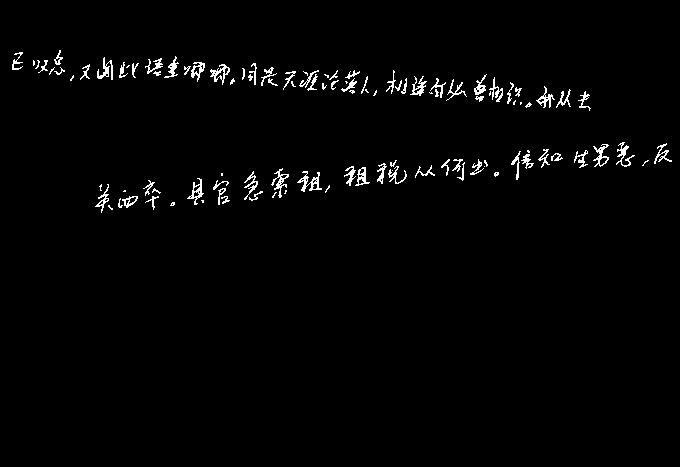 已叹息，又闻此语重唧唧。同是天涯沦落人，相逢何必曾相识。我从去
关西卒。县官急索租，租税从何出。信知生男恶，反